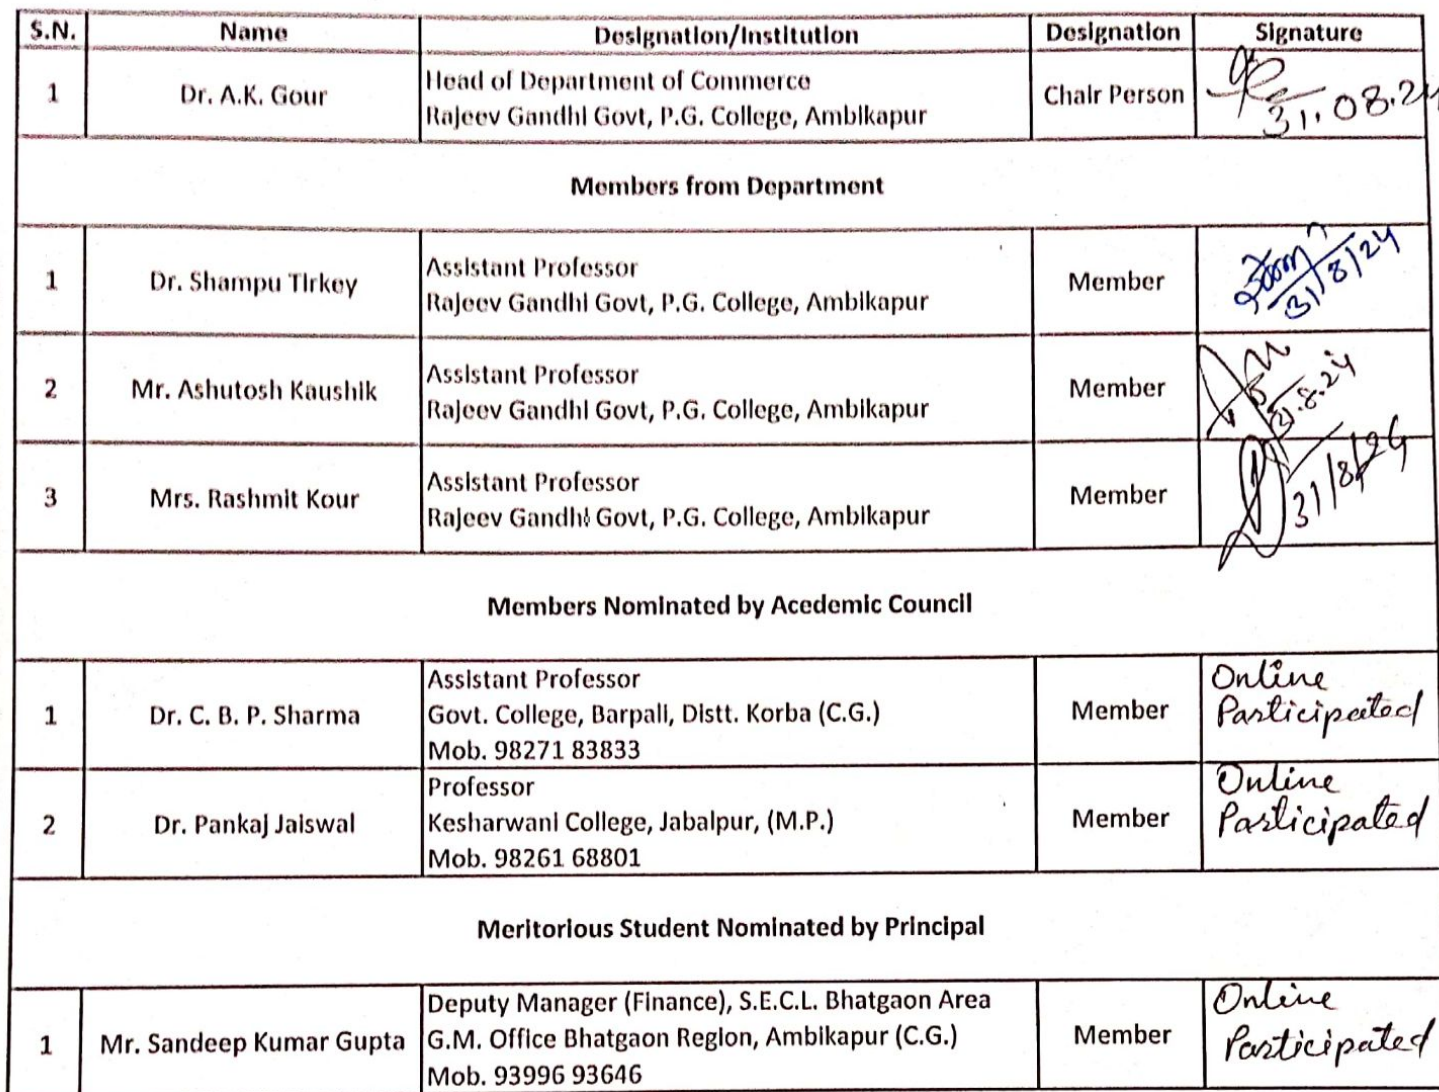 S.N. Name Designation/Institution Designation Signature
1 Dr. A.K. Gour Head of Department of Commerce
Rajeev Gandhi Govt, P.G. College, Ambikapur Chair Person 31.08.24
Members from Department
1 Dr. Shampu Tirkey Assistant Professor
Rajeev Gandhi Govt, P.G. College, Ambikapur Member 31/8/24
2 Mr. Ashutosh Kaushik Assistant Professor
Rajeev Gandhi Govt, P.G. College, Ambikapur Member 31.8.24
3 Mrs. Rashmit Kour Assistant Professor
Rajeev Gandhi Govt, P.G. College, Ambikapur Member 31/8/24
Members Nominated by Acedemic Council
1 Dr. C. B. P. Sharma Assistant Professor
Govt. College, Barpali, Distt. Korba (C.G.)
Mob. 98271 83833 Member Online
Participated
2 Dr. Pankaj Jaiswal Professor
Kesharwani College, Jabalpur, (M.P.)
Mob. 98261 68801 Member Online
Participated
Meritorious Student Nominated by Principal
1 Mr. Sandeep Kumar Gupta Deputy Manager (Finance), S.E.C.L. Bhatgaon Area
G.M. Office Bhatgaon Region, Ambikapur (C.G.)
Mob. 93996 93646 Member Online
Participated